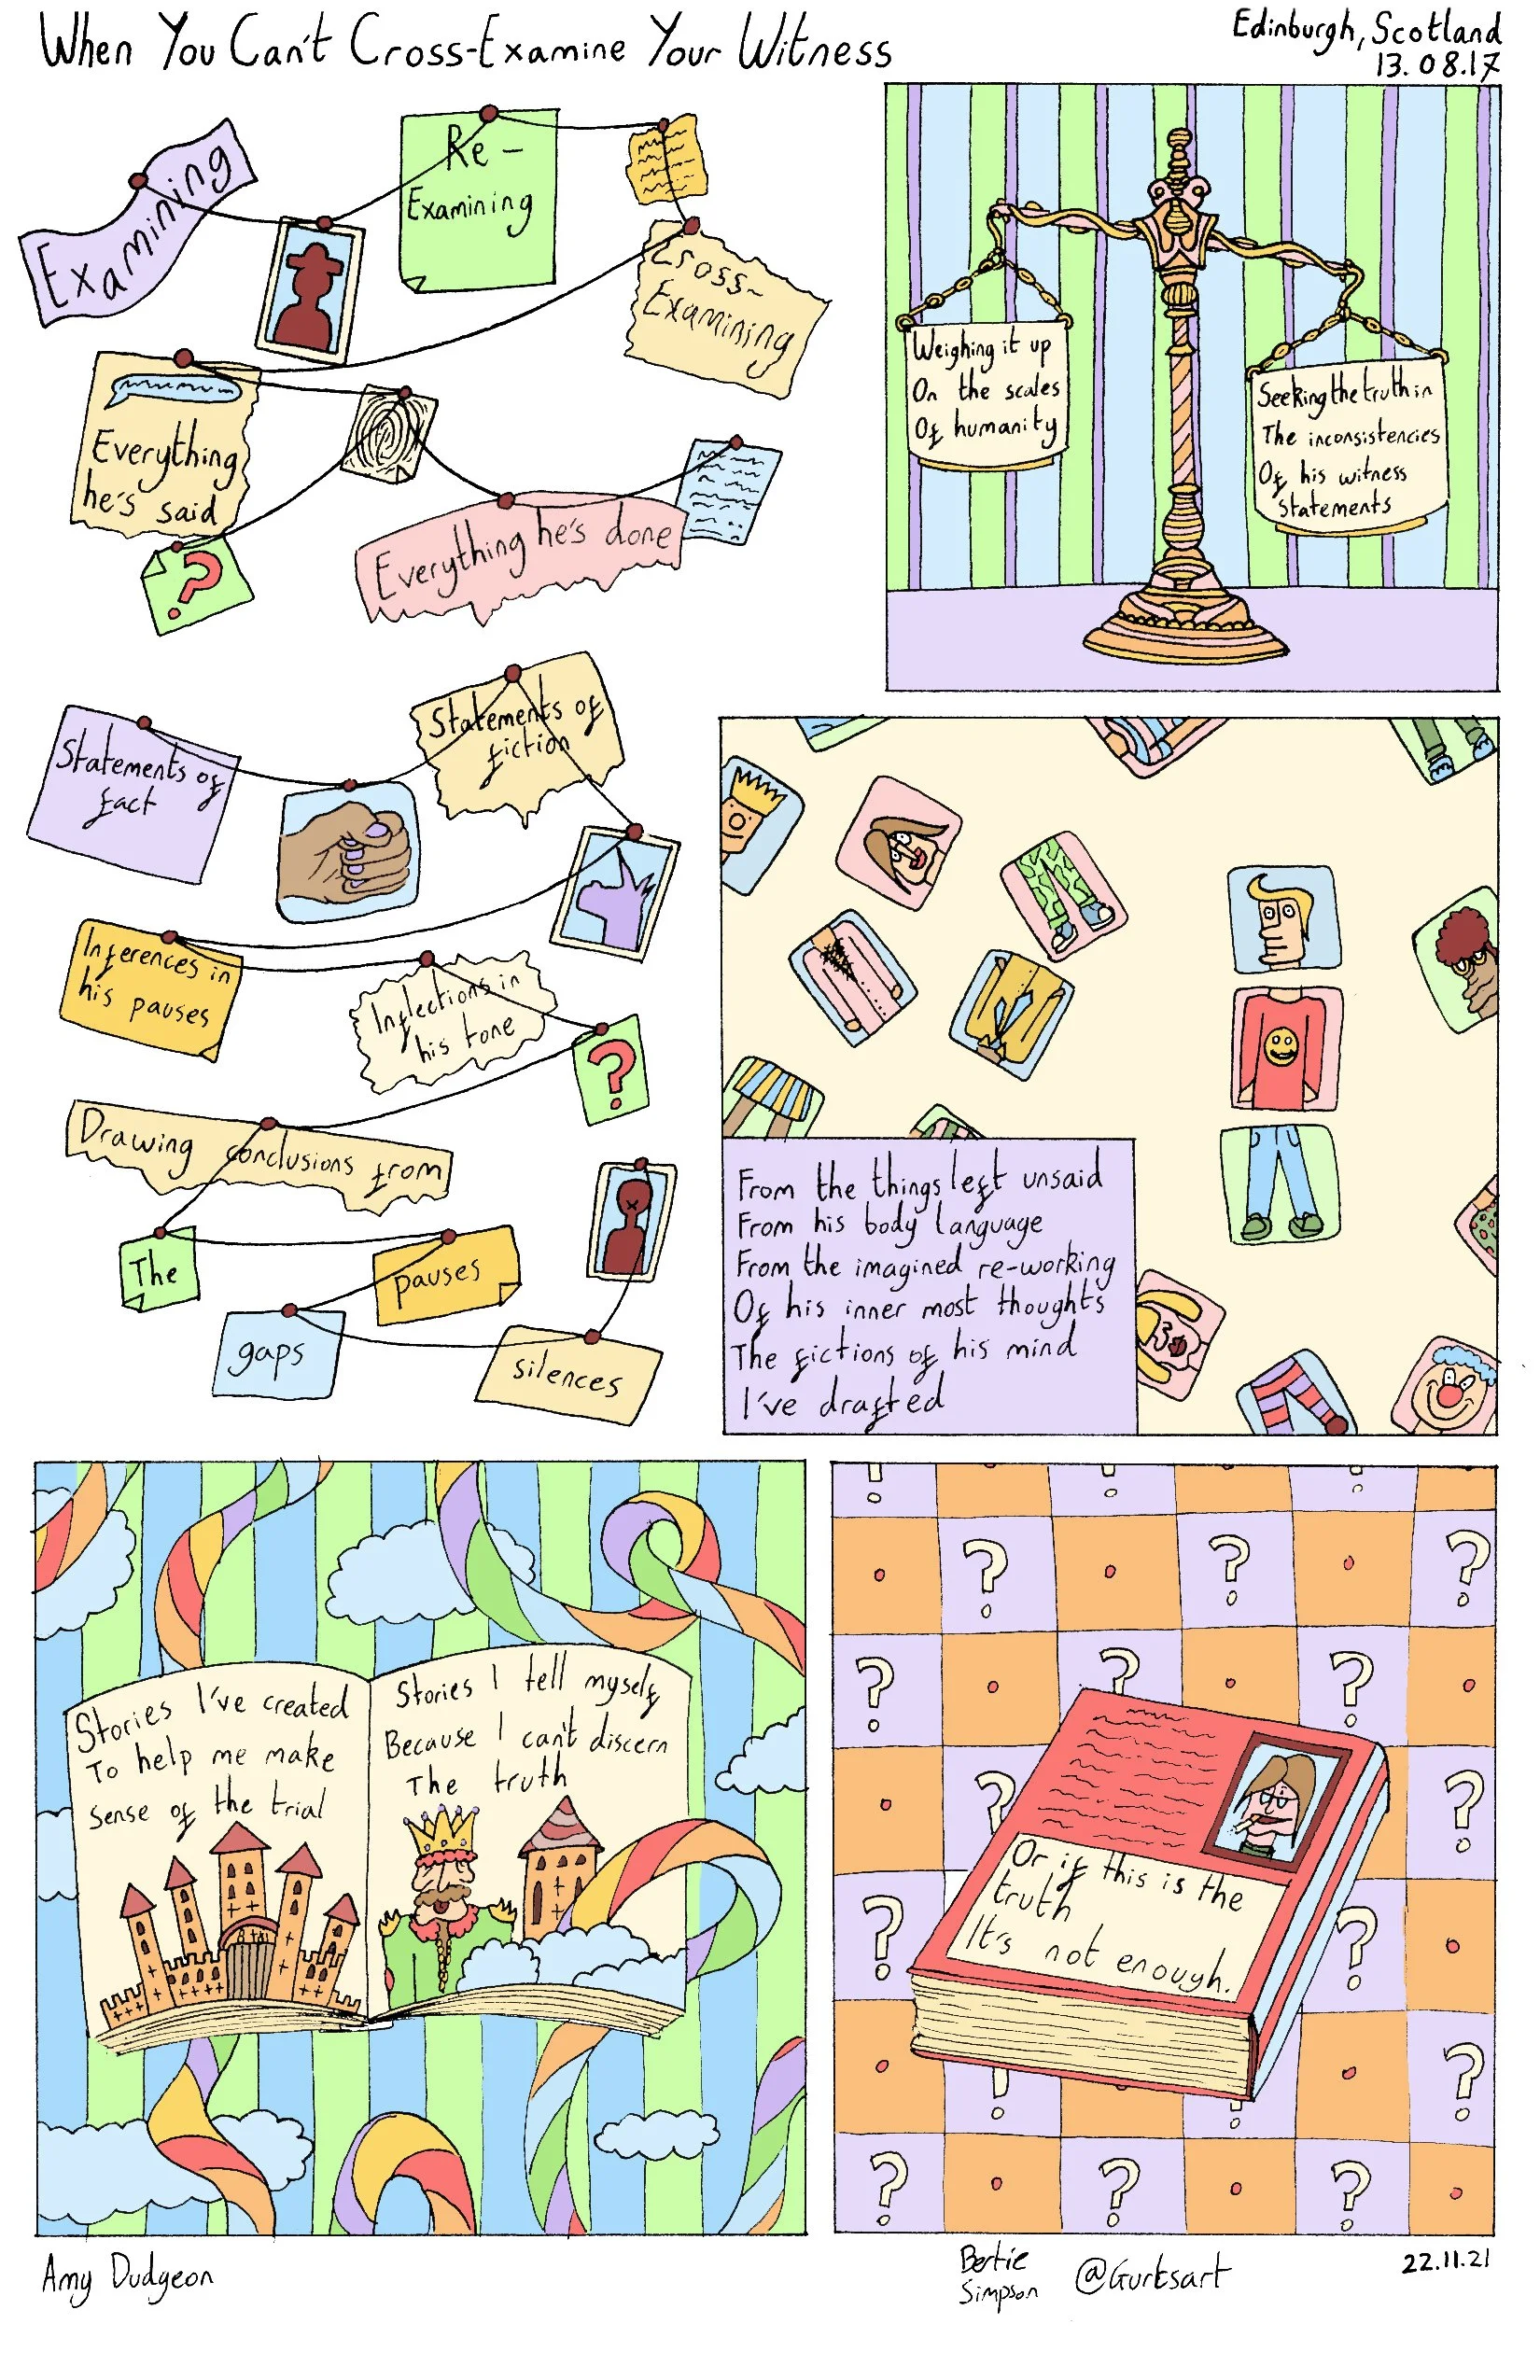 When You Can't Cross-Examine Your Witness
Edinburgh, Scotland
13.08.17
Examining
Re-
Examining
Cross-
Examining
Everything
he's said
?
Everything he's done
Weighing it up
On the scales
Of humanity
Seeking the truth in
The inconsistencies
Of his witness
Statements
Statements of
fact
Statements of
fiction
Inferences in
his pauses
Inflections in
his tone
?
Drawing conclusions from
The
pauses
gaps
silences
From the things left unsaid
From his body language
From the imagined re-working
Of his inner most thoughts
The fictions of his mind
I've drafted
Stories I've created
To help me make
sense of the trial
Stories I tell myself
Because I can't discern
The truth
Or if this is the
truth
It's not enough.
Amy Dudgeon
Bertie
Simpson
@Gurtsart
22.11.21